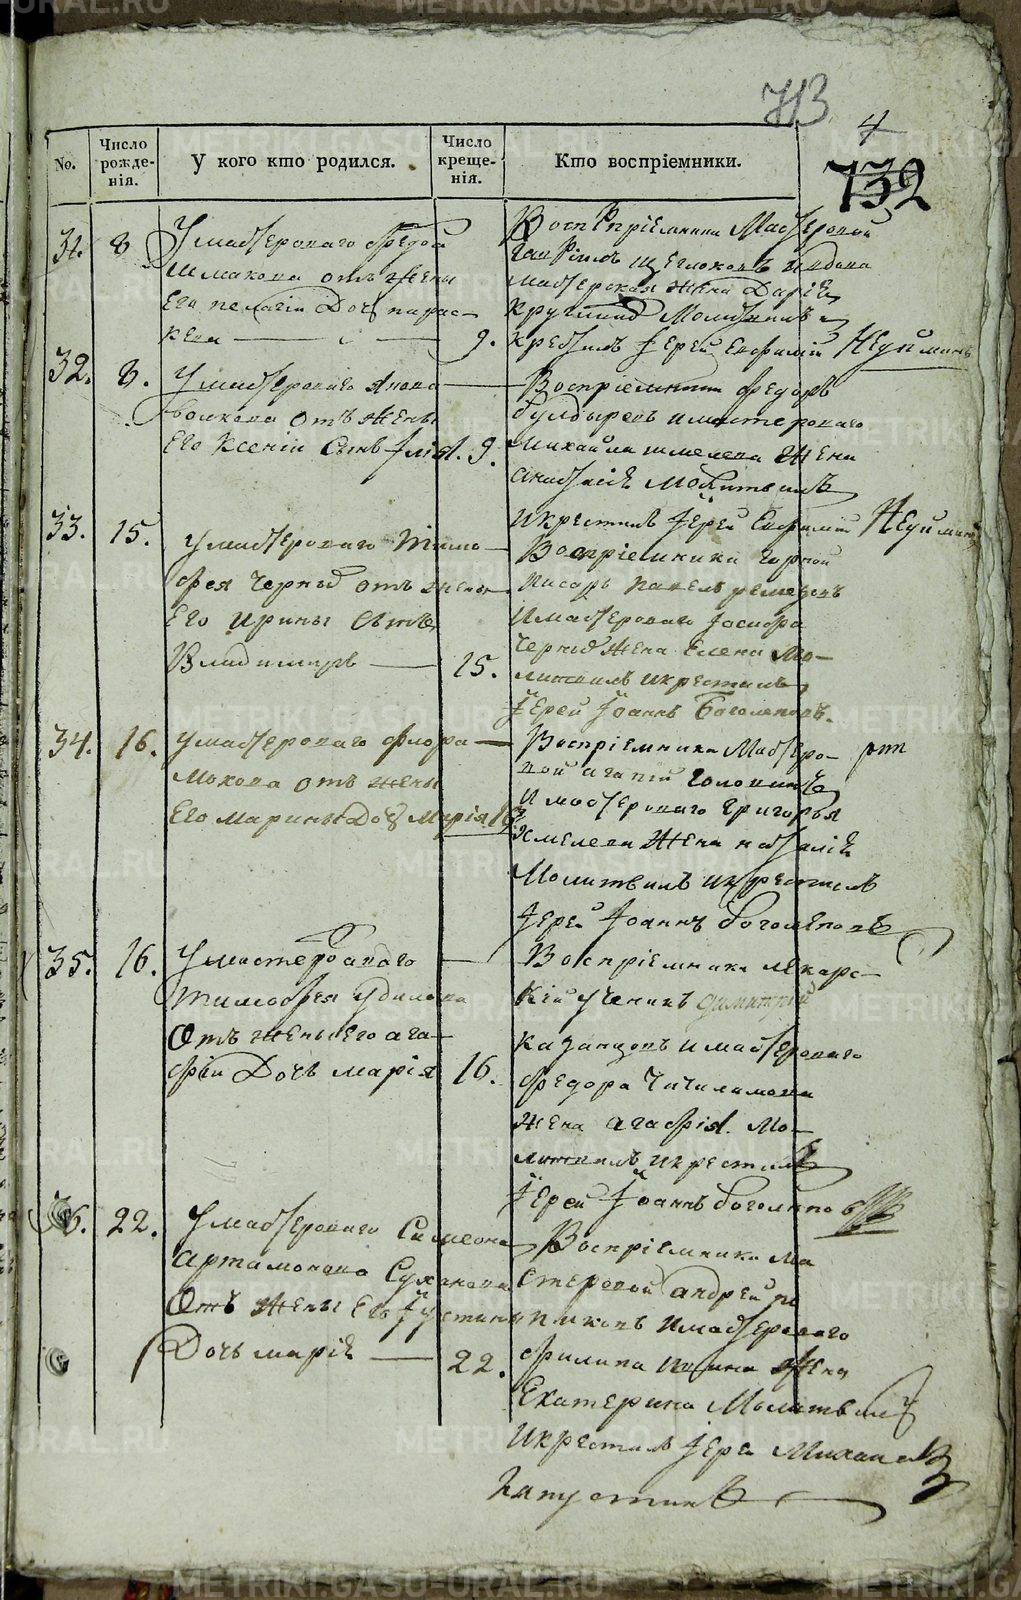 713
4
132
No.
Число рожде-нія.
У кого кто родился.
Число креще-нія.
Кто воспріемники.
31. 8
Умастероваго Федора
Шмакова отъ жены
Его пелагіи Дочь парас-
кева 9.
Воспріемники Мастеровой
Гаврилъ Щегловъ и вдова
мастерская жена Дарія
Молитвилъ и
крестилъ Іерей Евфимій Неуйминъ
32. 8.
Умастероваго
Волкова отъ жены
Его Ксеніи Сынъ Илія. 9.
Воспріемники Федоръ
Булдыревъ и мастероваго
Михайла шмелева жена
анастасія Молитвилъ
и крестилъ Іерей Евфимій Неуйминъ
33. 15.
Умастероваго Тимо-
фея Черных отъ жены
Его Ирины Сынъ
Владимиръ 15.
Воспріемники горной
писарь павелъ ремезовъ
и мастероваго Іосифа
Черных жена Елена Мо-
литвилъ и крестилъ
Іерей Іоаннъ Боголеповъ.
34. 16.
умастероваго Флора
Мохова отъ жены
Его Марины Дочь Марія 16
Воспріемники Мастеро-
вой агапій Головинъ
и мастероваго Григорья
Хмелева жена наталія
Молитвилъ и крестилъ
Іерей Іоаннъ боголеповъ
35. 16.
Умастероваго
Тимофея Удилова
Отъ жены Его ага-
фіи Дочь марія 16.
Воспріемники лекарс-
кій ученикъ Димитрій
Казанцовъ и мастероваго
Федора Чичиланова
жена агафія. Мо-
литвилъ и крестилъ
Іерей Іоаннъ боголеповъ
36. 22.
Умастероваго Симеона
артамонова Суханова
Отъ жены Его Іустины
Дочь марія 22.
Воспріемники ма
стеровой андрей по
пиковъ и мастероваго
Филипа жена
Екатерина Молитвилъ
и крестилъ Іерей Михаилъ
Капустинъ
METRIKI.GASO-URAL.RU